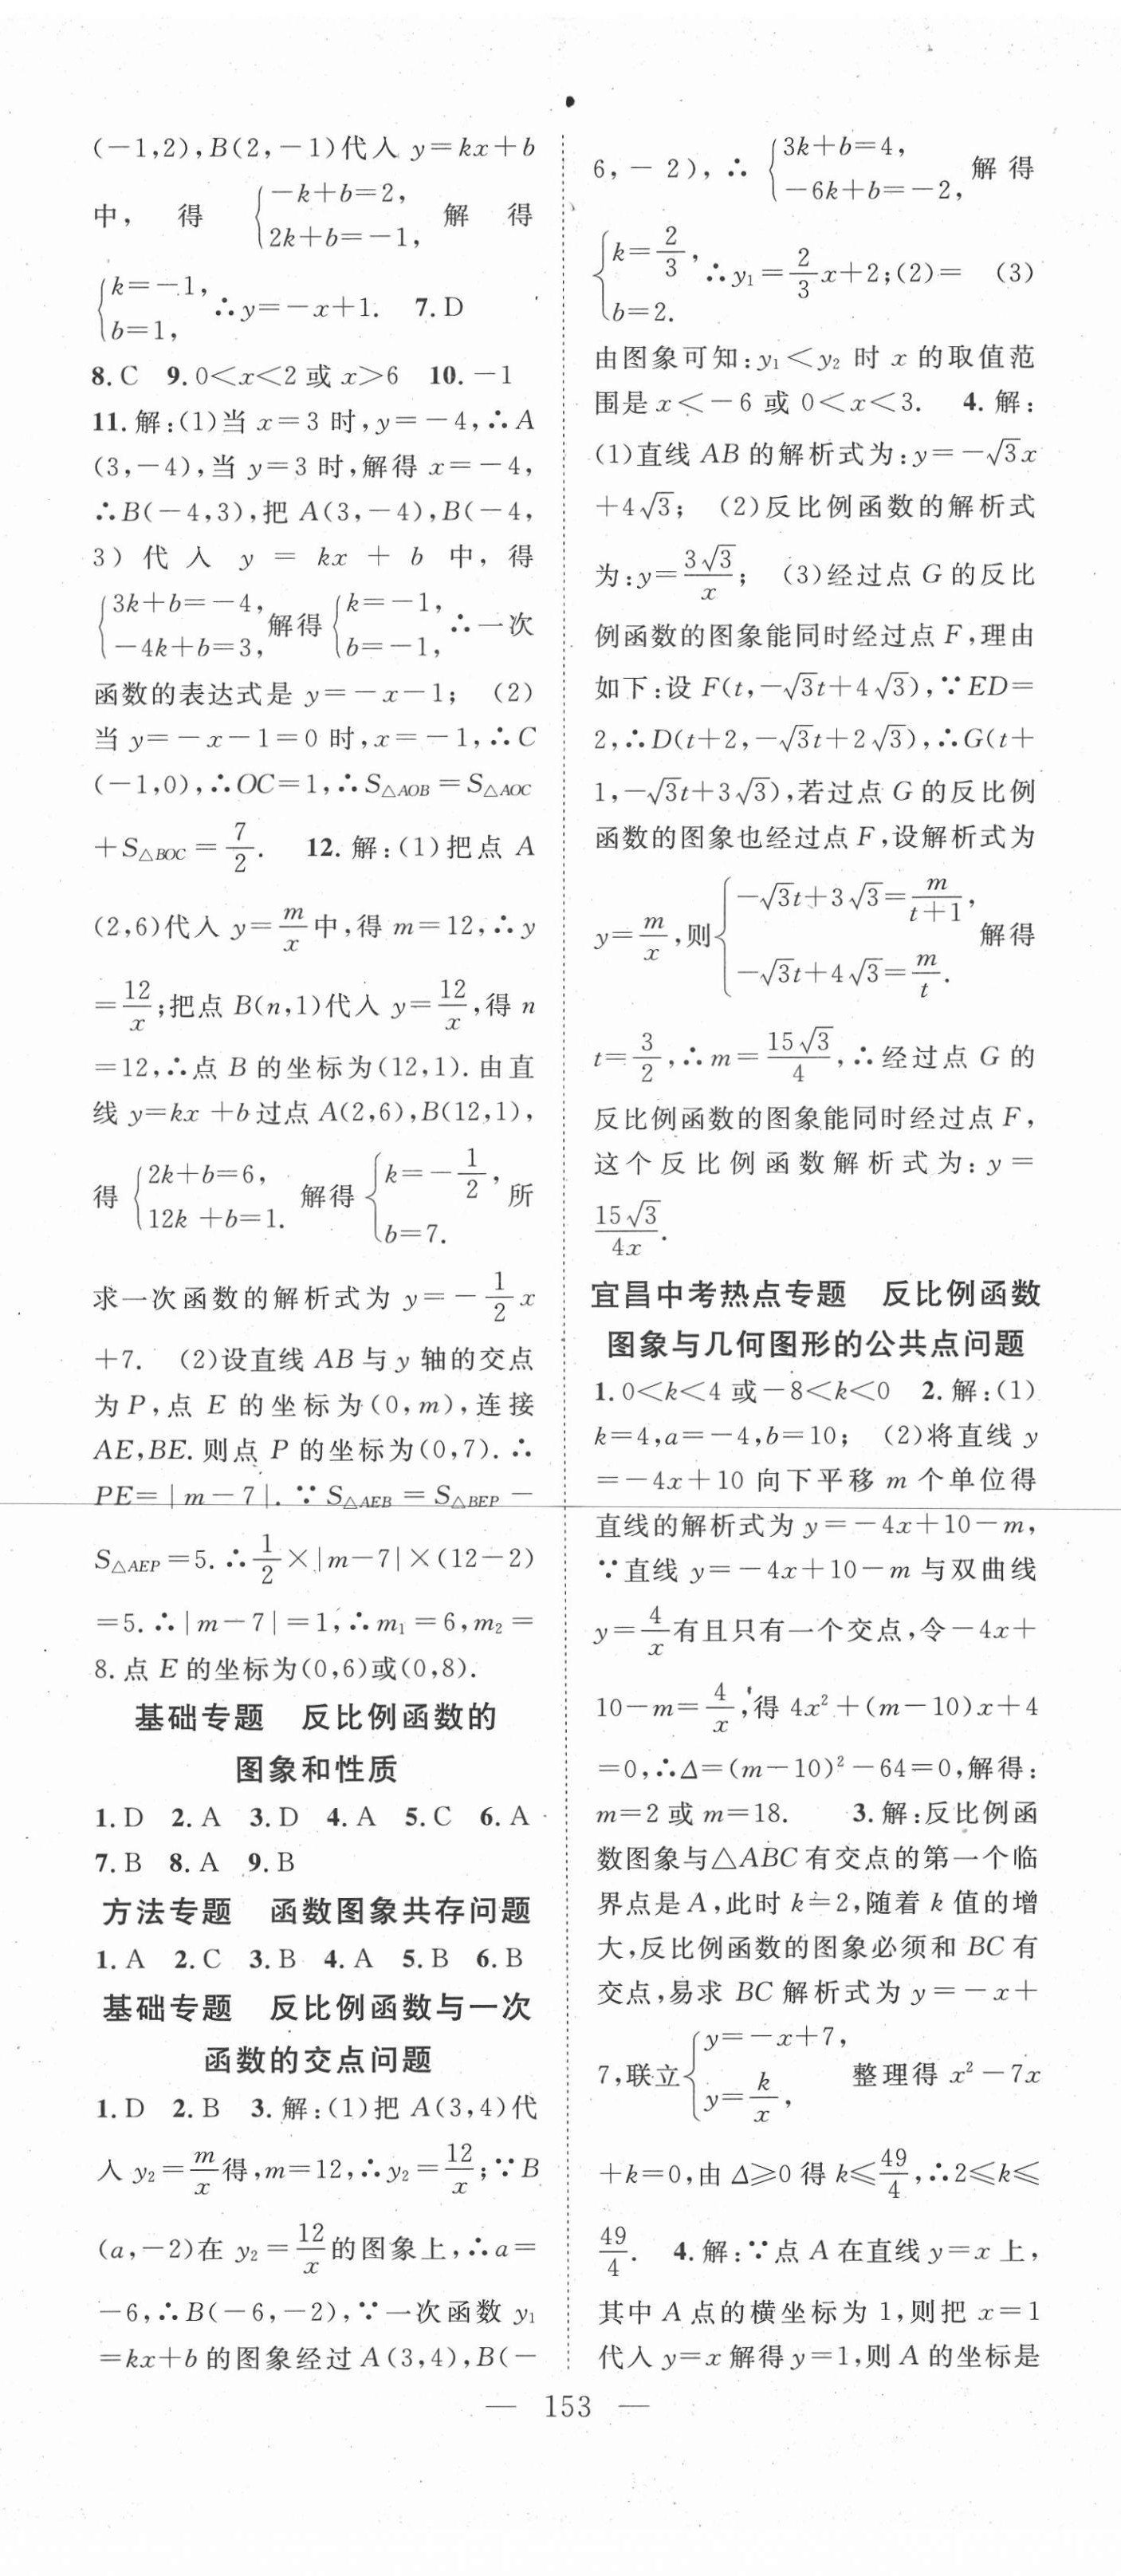 (-1,2),B(2,-1)代入 y=kx+b
中, 得 {-k+b=2, 2k+b=-1, 解 得
{k=-1, b=1, ∴y=-x+1. 7. D
8. C 9. 0<x<2或 x>6 10. -1
11. 解:(1)当 x=3 时,y=-4,∴A
(3,-4),当 y=3 时,解得 x=-4,
∴B(-4,3),把 A(3,-4),B(-4,
3) 代 入 y = kx + b 中, 得
{3k+b=-4, -4k+b=3, 解得 {k=-1, b=-1, ∴一次
函数的表达式是 y=-x-1; (2)
当 y=-x-1=0 时,x=-1,∴C
(-1,0),∴OC=1,∴S△AOB=S△AOC
+S△BOC=7/2. 12. 解:(1)把点 A
(2,6)代入 y=m/x中,得 m=12,∴y
=12/x;把点 B(n,1)代入 y=12/x,得 n
=12,∴点 B 的坐标为(12,1).由直
线 y=kx+b过点 A(2,6),B(12,1),
得 {2k+b=6, 12k+b=1. 解得 {k=-1/2, b=7. 所
求一次函数的解析式为 y=-1/2x
+7. (2)设直线 AB 与 y 轴的交点
为 P,点 E 的坐标为(0,m),连接
AE,BE.则点 P 的坐标为(0,7).∴
PE=|m-7|.∵S△AEB=S△BEP-
S△AEP=5.∴1/2×|m-7|×(12-2)
=5.∴|m-7|=1,∴m₁=6,m₂=
8.点 E 的坐标为(0,6)或(0,8).
基础专题 反比例函数的
图象和性质
1. D 2. A 3. D 4. A 5. C 6. A
7. B 8. A 9. B
方法专题 函数图象共存问题
1. A 2. C 3. B 4. A 5. B 6. B
基础专题 反比例函数与一次
函数的交点问题
1. D 2. B 3. 解:(1)把 A(3,4)代
入 y₂=m/x得,m=12,∴y₂=12/x;∵B
(a,-2)在 y₂=12/x的图象上,∴a=
-6,∴B(-6,-2),∵一次函数 y₁
=kx+b的图象经过 A(3,4),B(-
6,-2),∴ {3k+b=4, -6k+b=-2, 解 得
{k=2/3, b=2. ∴y₁=2/3x+2;(2)= (3)
由图象可知:y₁<y₂ 时 x 的取值范
围是 x<-6 或 0<x<3. 4. 解:
(1)直线 AB 的解析式为:y=-√3x
+4√3; (2)反比例函数的解析式
为:y=3√3/x; (3)经过点 G 的反比
例函数的图象能同时经过点 F,理由
如下:设 F(t,-√3t+4√3),∵ED=
2,∴D(t+2,-√3t+2√3),∴G(t+
1,-√3t+3√3),若过点 G 的反比例
函数的图象也经过点 F,设解析式为
y=m/x,则{-√3t+3√3=m/(t+1), -√3t+4√3=m/t. 解得
t=3/2,∴m=15√3/4,∴经过点 G 的
反比例函数的图象能同时经过点 F,
这个反比例函数解析式为:y=
15√3/4x.
宜昌中考热点专题 反比例函数
图象与几何图形的公共点问题
1. 0<k<4 或-8<k<0 2. 解:(1)
k=4,a=-4,b=10; (2)将直线 y
=-4x+10 向下平移 m 个单位得
直线的解析式为 y=-4x+10-m,
∵直线 y=-4x+10-m 与双曲线
y=4/x有且只有一个交点,令-4x+
10-m=4/x,得 4x²+(m-10)x+4
=0,∴Δ=(m-10)²-64=0,解得:
m=2 或 m=18. 3. 解:反比例函
数图象与△ABC 有交点的第一个临
界点是 A,此时 k=2,随着 k 值的增
大,反比例函数的图象必须和 BC 有
交点,易求 BC 解析式为 y=-x+
7,联立{y=-x+7, y=k/x, 整理得 x²-7x
+k=0,由 Δ≥0 得 k≤49/4,∴2≤k≤
49/4. 4. 解:∵点 A 在直线 y=x 上,
其中 A 点的横坐标为 1,则把 x=1
代入 y=x 解得 y=1,则 A 的坐标是
— 153 —